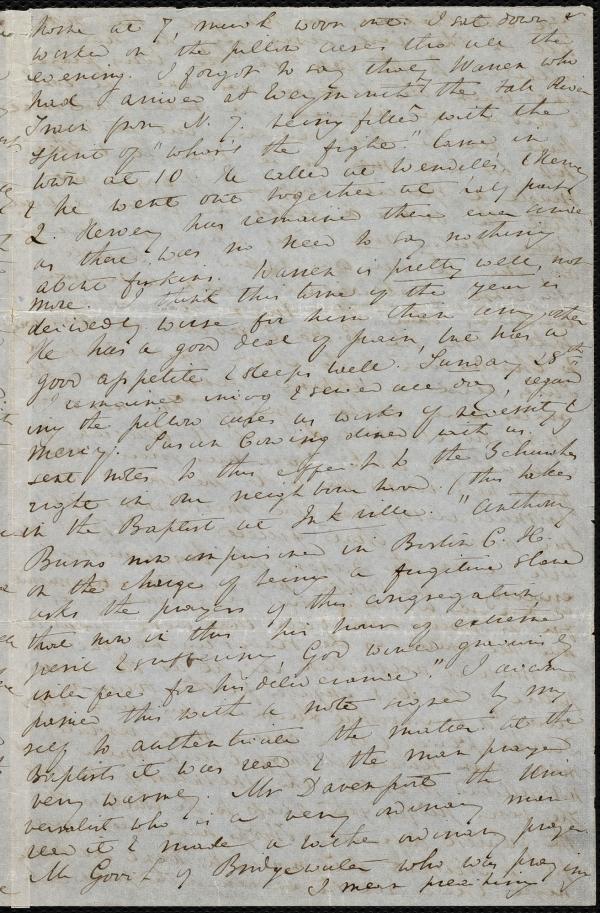 home at 7, much worn out. I sat down &
worked on the pillow cases tho all the
evening. I forgot to say that Warren who
had arrived at Weymouth the Fall River
Train from N. Y. being filled with the
spirit of "where's the fight." Came in
town at 10. He called at Wendell's (Henry
& he went out together at half past
2. Hervey has remained there ever since
as there was no need to say nothing
about firkins. Warren is pretty well, not
more. I think this time of the year is
decidedly worse for him than any other
He has a good deal of pain, but has a
good appetite & sleeps well. Sunday 28th
I remained in & sewed all day, regard
ing the pillow cases as works of necessity &
mercy. Susan Cowing dined with us. I
sent notes to this effect to the 3 churches
right in our neighbourhood. (this takes
in the Baptist at Ink ville. "Anthony
Burns now imprisoned in Boston C. H.
on the charge of being a fugitive slave
asks the prayers of this congregation
that now in this his hour of extreme
peril & suffering, God would graciously
interpose for his deliverance." I accom
panied this with a note signed by my
self to authenticate the matter. At the
Baptists it was read & the man prayed
very warmly. Mr Davenport the Uni
versalist who is a very ordinary man
read it & made a rather ordinary prayer
Mr of Bridgewater who was praying
I mean preaching